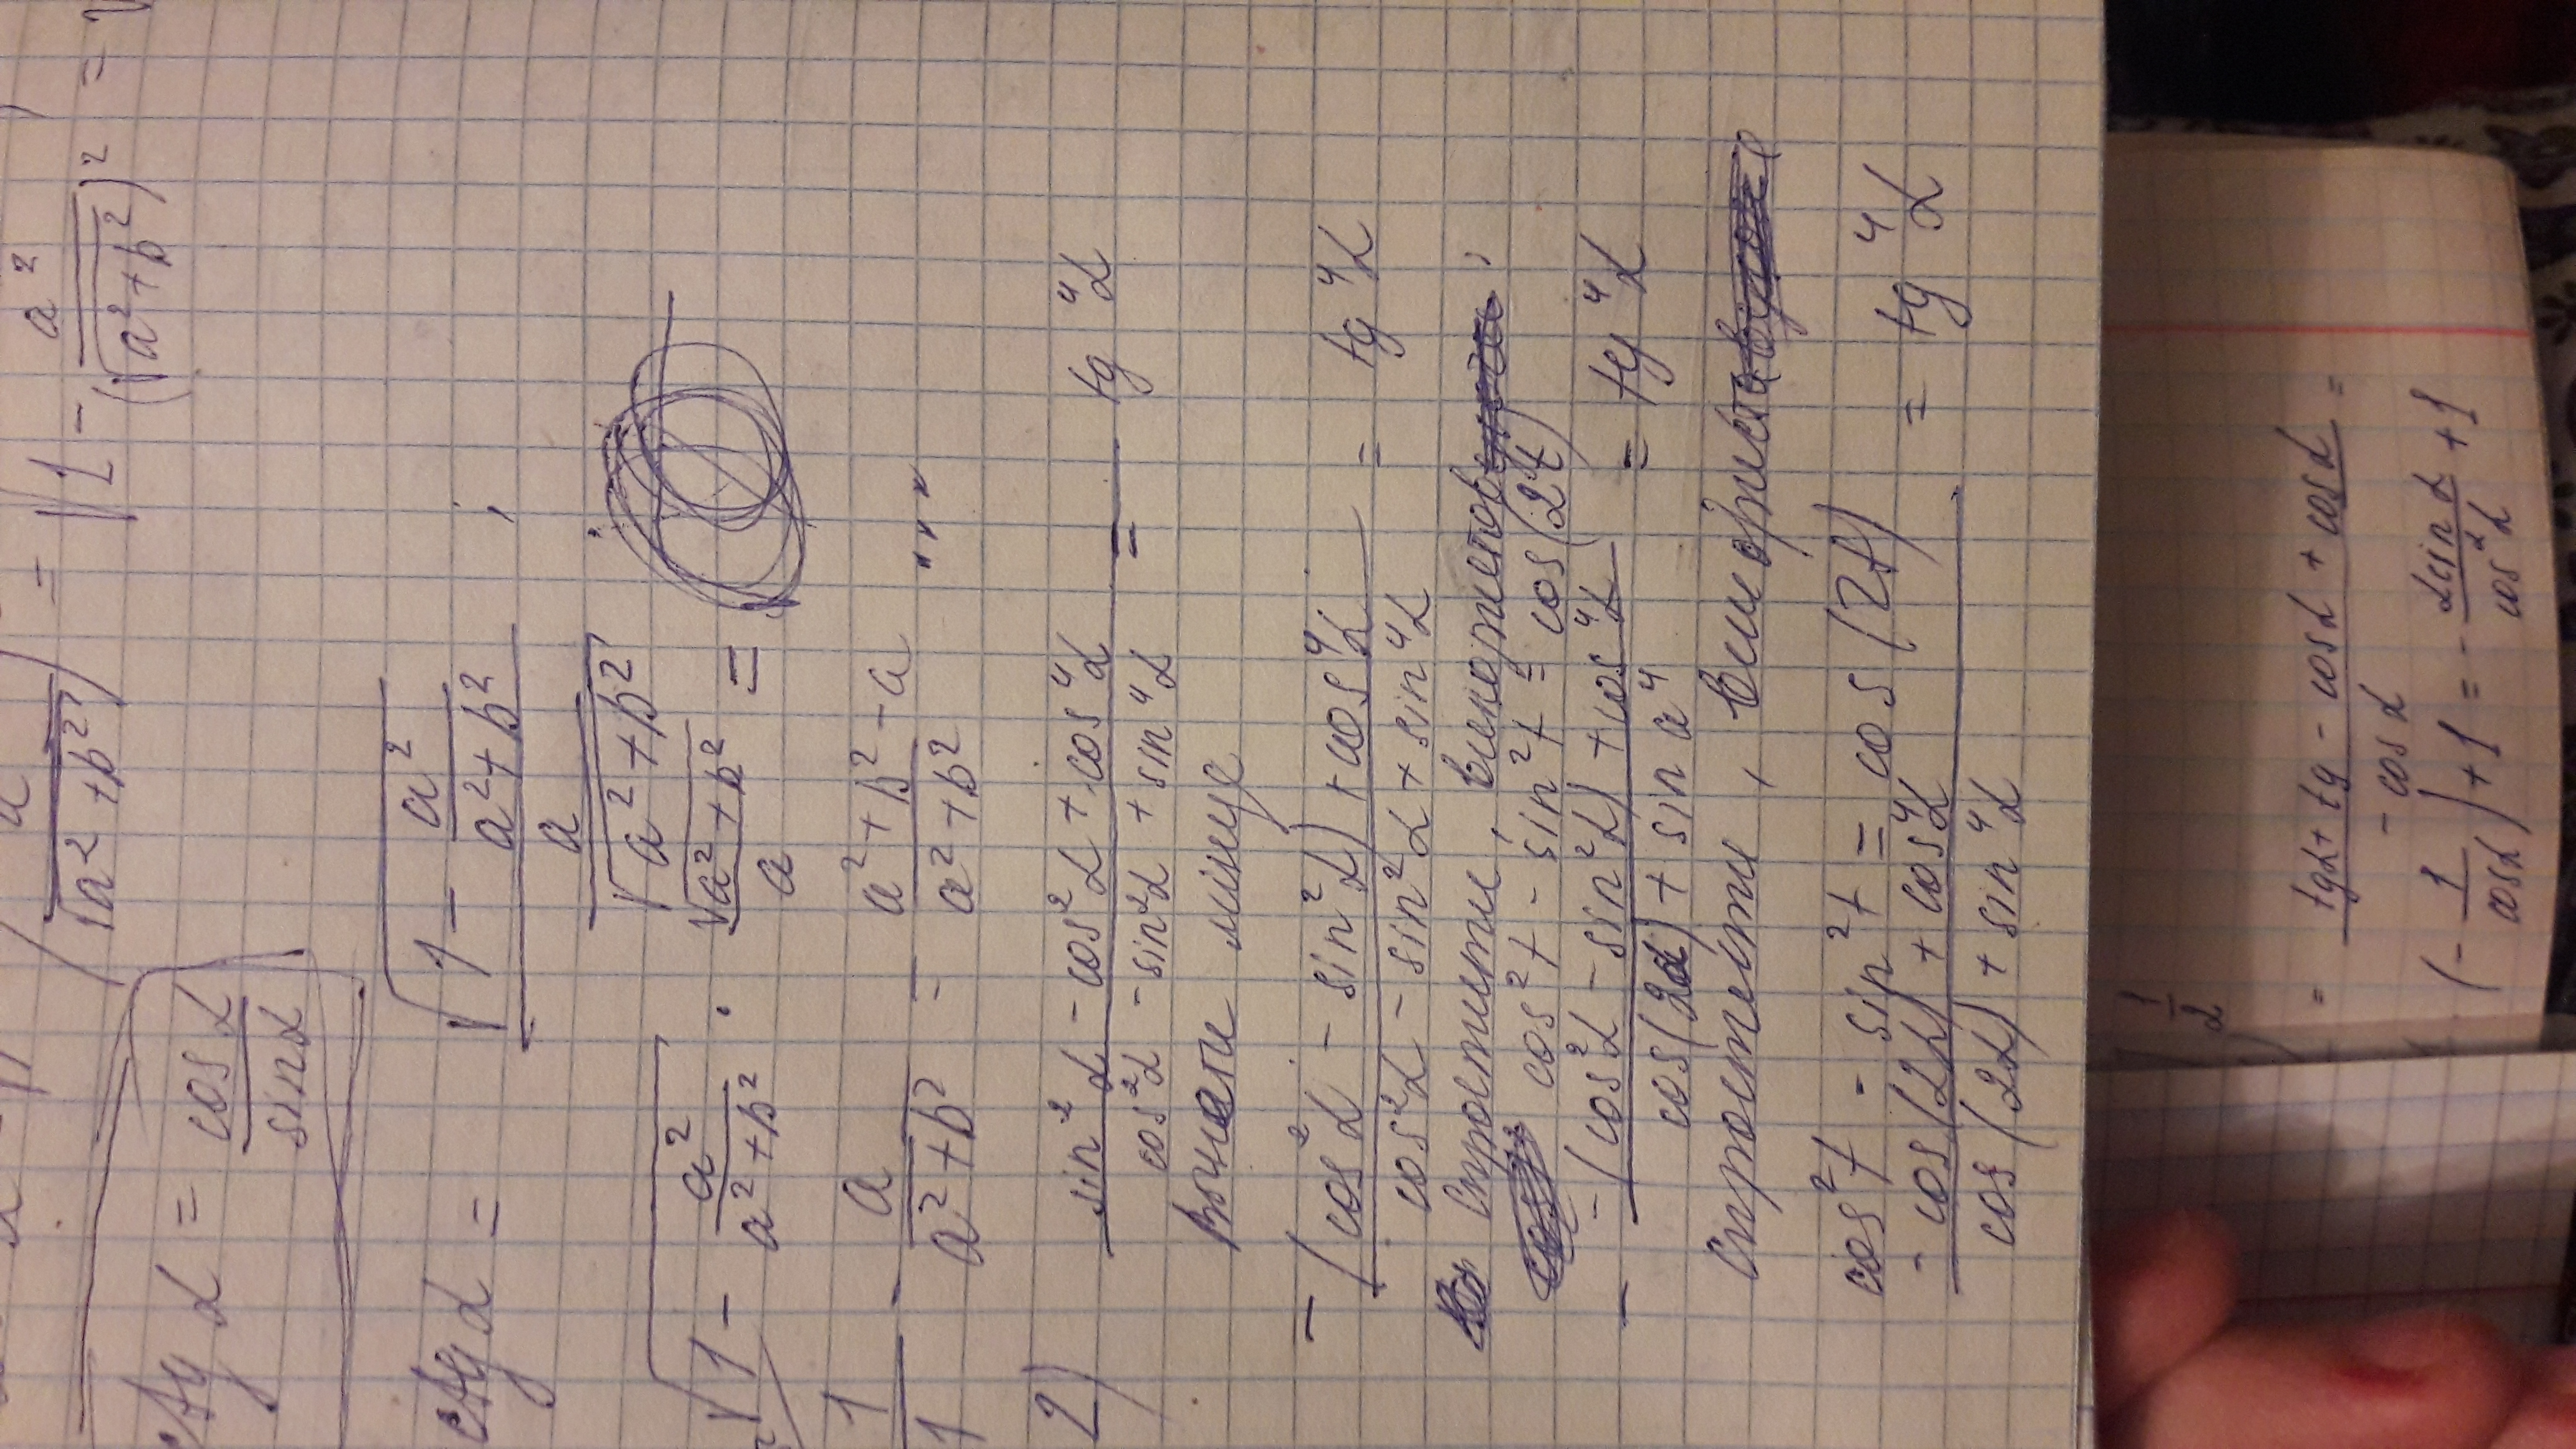 a/√(a²+b²)) = √(1 - a²/(√(a²+b²))²) =
ctg α = cos α / sin α
ctg α = √(1 - a²/(a²+b²)) / (a/√(a²+b²)) ;
√(1 - a²/(a²+b²)) · √(a²+b²)/a =
1/1 - a/(a²+b²) - (a²+b²-a)/(a²+b²) ...
2) (sin²α - cos²α + cos⁴α)/(cos²α - sin²α + sin⁴α) = tg⁴α
мінус
- (cos²α - sin²α) + cos⁴α / cos²α - sin²α + sin⁴α = tg⁴α
Спростити,
cos²t - sin²t = cos(2t)
- -(cos²α - sin²α) + cos⁴α / cos(2α) + sin a⁴ = tg⁴α
спростити,
cos²t - sin²t = cos(2t)
- cos(2α) + cos⁴α / cos(2α) + sin⁴α = tg⁴α
1/2
= (tgα + tg - cosα + cosα)/(-cosα) =
(-1/cosα) + 1 = - αsinα/cos²α + 1